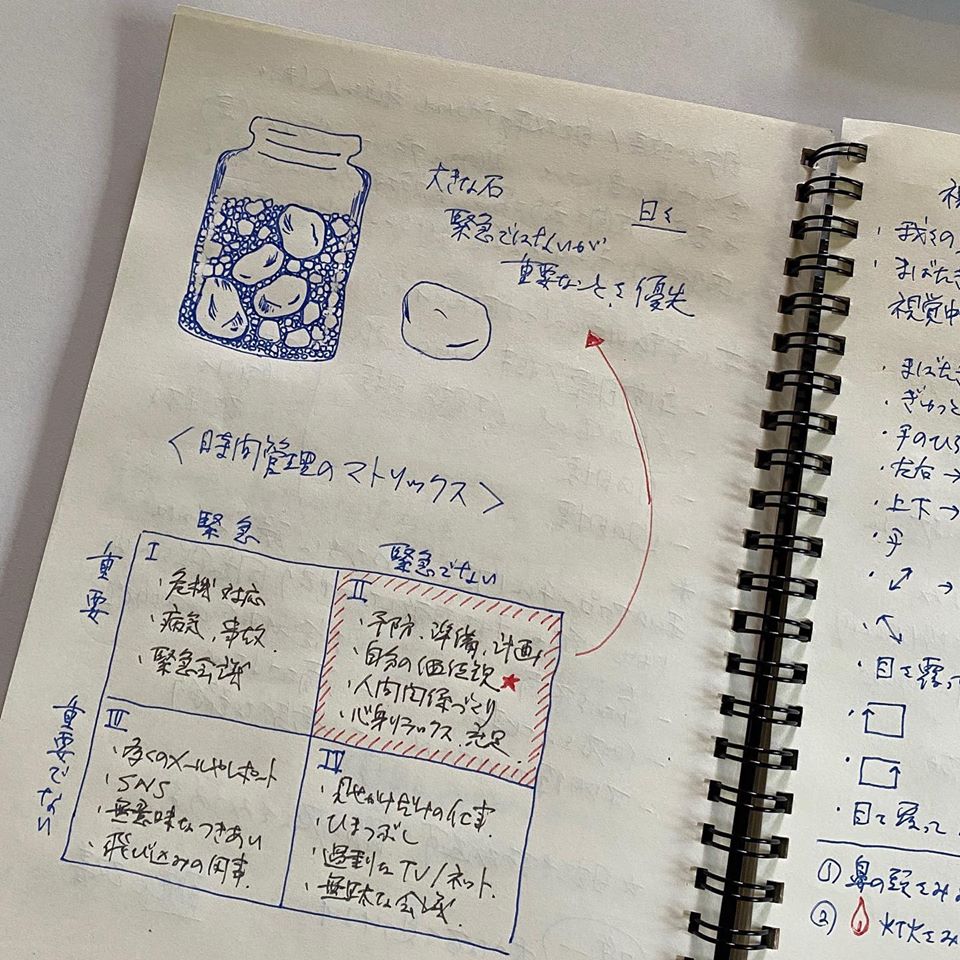 大きな石
日々
緊急ではないが
重要なことを優先
<時間管理のマトリックス>
緊急
緊急でない
重要
I
・危機対応
・病気、事故
・緊急会議
II
・予防、準備、計画
・自分の価値観★
・人間関係づくり
・心身リラックス、充足
重要でない
III
・多くのメールやレポート
・SNS
・無意味なつきあい
・飛び込みの用事
IV
・見せかけだけの仕事
・ひまつぶし
・過剰なTV/ネット
・無駄な会議
視
・我々の
・まばたき
視覚中
・まばたき
・ぎゅっと
・手のひら
・左右→
・上下→
・
・↗→
・↘
・目を
・
・
・目を
① 鼻の頭をみ
②